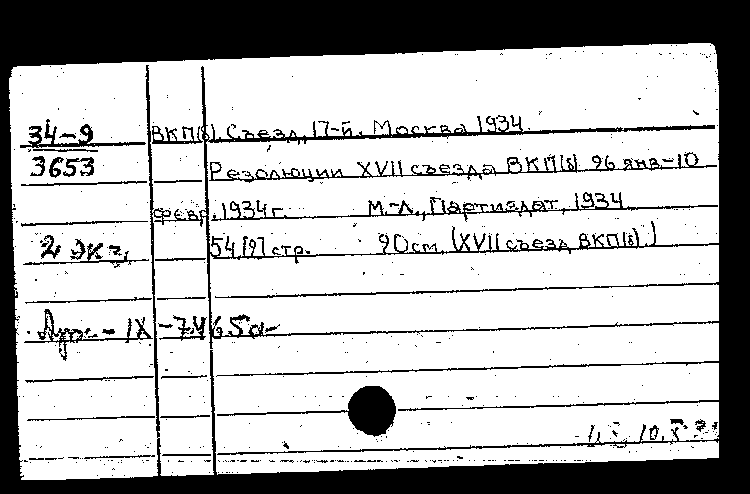 34-9 ВКП(б). Съезд, 17-й. Москва 1934.
3653 Резолюции XVII съезда ВКП(б) 26 янв-10
февр. 1934г. М.-Л., Партиздат, 1934
2 экз. 54 [2] стр. 20см. (XVII съезд ВКП(б).)
IX-7465а
10.X